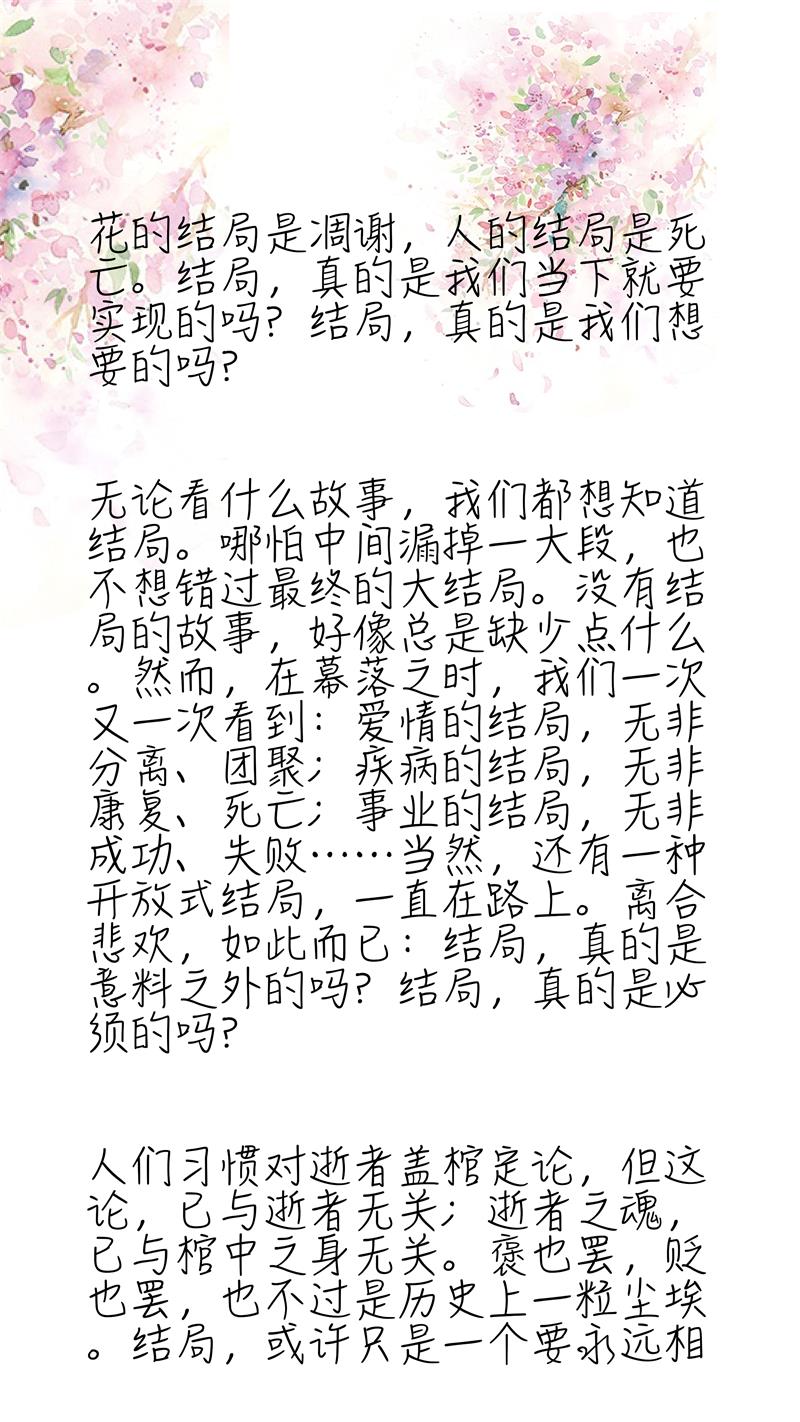 花的结局是凋谢，人的结局是死
亡。结局，真的是我们当下就要
实现的吗？结局，真的是我们想
要的吗？
无论看什么故事，我们都想知道
结局。哪怕中间漏掉一大段，也
不想错过最终的大结局。没有结
局的故事，好像总是缺少点什么
。然而，在幕落之时，我们一次
又一次看到：爱情的结局，无非
分离、团聚；疾病的结局，无非
康复、死亡；事业的结局，无非
成功、失败……当然，还有一种
开放式结局，一直在路上。离合
悲欢，如此而已：结局，真的是
意料之外的吗？结局，真的是必
须的吗？
人们习惯对逝者盖棺定论，但这
论，已与逝者无关；逝者之魂，
已与棺中之身无关。褒也罢，贬
也罢，也不过是历史上一粒尘埃
。结局，或许只是一个要永远相